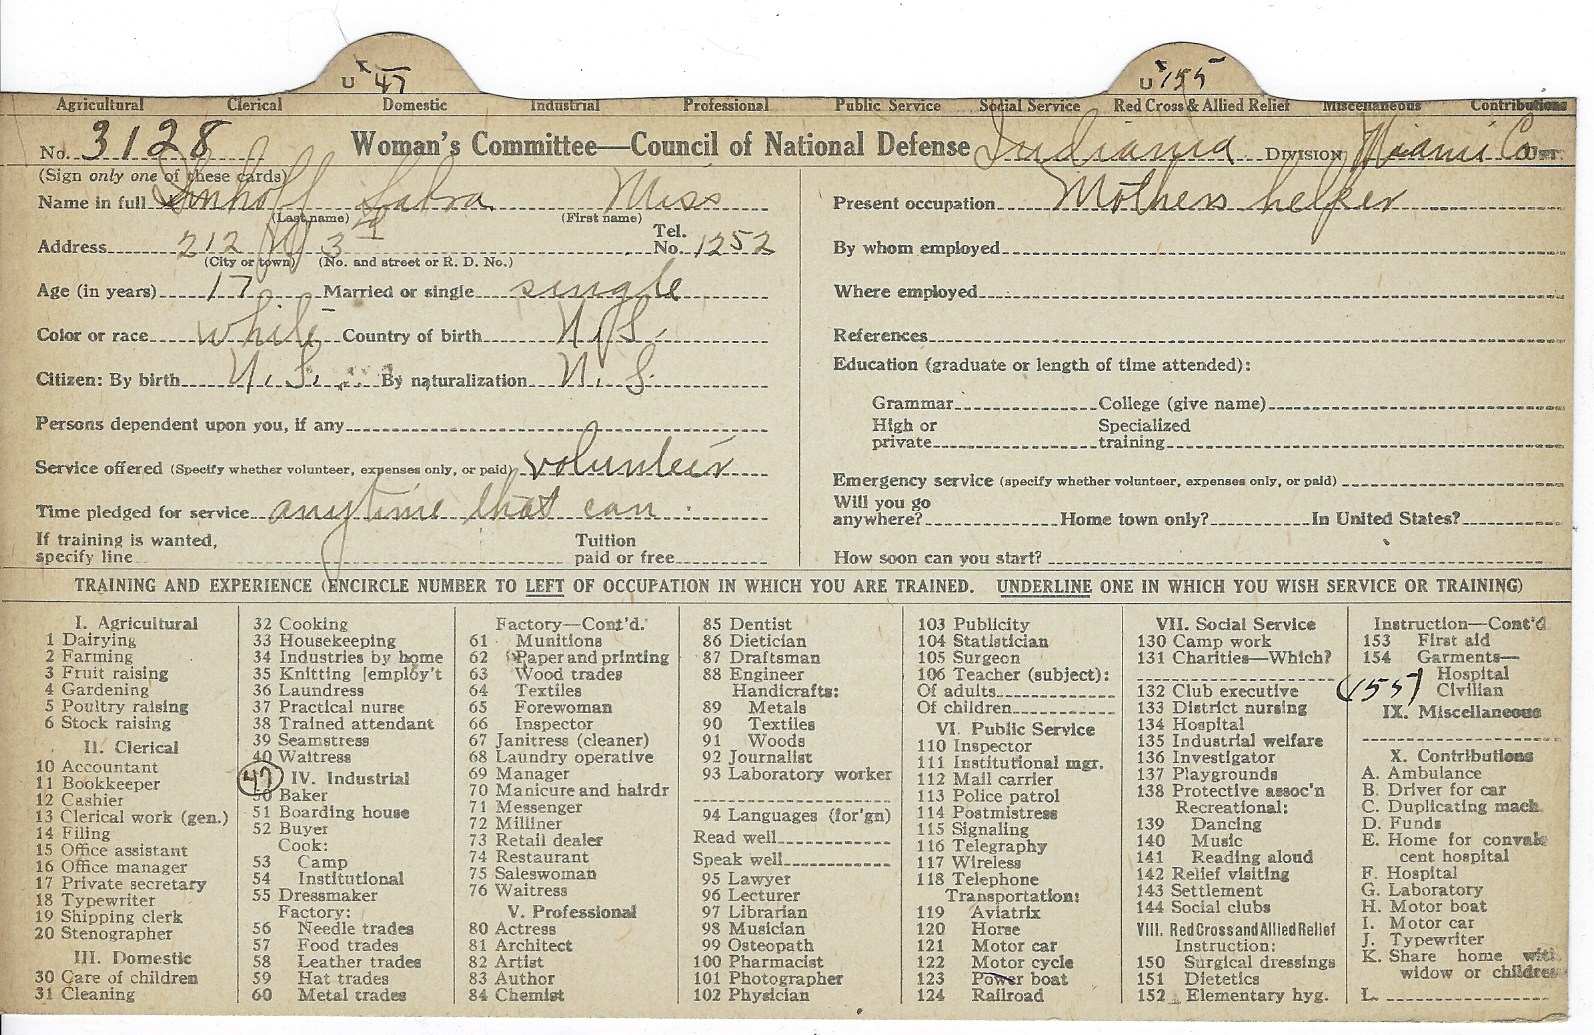 U x 47 U x 155
Agricultural Clerical Domestic Industrial Professional Public Service Social Service Red Cross & Allied Relief Miscellaneous Contributions
No. 3128 Woman's Committee—Council of National Defense Indiana DIVISION Miami Co UNIT
(Sign only one of these cards)
Name in full Imhoff Sabra Miss
(Last name) (First name)
Address 212 W 3rd Tel. No. 1252
(City or town) (No. and street or R. D. No.)
Age (in years) 17 Married or single single
Color or race white Country of birth U.S.
Citizen: By birth U.S. By naturalization U.S.
Persons dependent upon you, if any
Service offered (Specify whether volunteer, expenses only, or paid) volunteer
Time pledged for service anytime that can
If training is wanted, specify line Tuition paid or free
Present occupation Mothers helper
By whom employed
Where employed
References
Education (graduate or length of time attended):
Grammar College (give name)
High or private Specialized training
Emergency service (specify whether volunteer, expenses only, or paid)
Will you go anywhere? Home town only? In United States?
How soon can you start?
TRAINING AND EXPERIENCE (ENCIRCLE NUMBER TO LEFT OF OCCUPATION IN WHICH YOU ARE TRAINED. UNDERLINE ONE IN WHICH YOU WISH SERVICE OR TRAINING)
I. Agricultural
1 Dairying
2 Farming
3 Fruit raising
4 Gardening
5 Poultry raising
6 Stock raising
II. Clerical
10 Accountant
11 Bookkeeper
12 Cashier
13 Clerical work (gen.)
14 Filing
15 Office assistant
16 Office manager
17 Private secretary
18 Typewriter
19 Shipping clerk
20 Stenographer
III. Domestic
30 Care of children
31 Cleaning
32 Cooking
33 Housekeeping
34 Industries by home
35 Knitting [employ't
36 Laundress
37 Practical nurse
38 Trained attendant
39 Seamstress
40 Waitress
47
IV. Industrial
50 Baker
51 Boarding house
52 Buyer
Cook:
53 Camp
54 Institutional
55 Dressmaker
Factory:
56 Needle trades
57 Food trades
58 Leather trades
59 Hat trades
60 Metal trades
Factory—Cont'd.
61 Munitions
62 Paper and printing
63 Wood trades
64 Textiles
65 Forewoman
66 Inspector
67 Janitress (cleaner)
68 Laundry operative
69 Manager
70 Manicure and hairdr
71 Messenger
72 Milliner
73 Retail dealer
74 Restaurant
75 Saleswoman
76 Waitress
V. Professional
80 Actress
81 Architect
82 Artist
83 Author
84 Chemist
85 Dentist
86 Dietician
87 Draftsman
88 Engineer
Handicrafts:
89 Metals
90 Textiles
91 Woods
92 Journalist
93 Laboratory worker
94 Languages (for'gn)
Read well
Speak well
95 Lawyer
96 Lecturer
97 Librarian
98 Musician
99 Osteopath
100 Pharmacist
101 Photographer
102 Physician
103 Publicity
104 Statistician
105 Surgeon
106 Teacher (subject):
Of adults
Of children
VI. Public Service
110 Inspector
111 Institutional mgr.
112 Mail carrier
113 Police patrol
114 Postmistress
115 Signaling
116 Telegraphy
117 Wireless
118 Telephone
Transportation:
119 Aviatrix
120 Horse
121 Motor car
122 Motor cycle
123 Power boat
124 Railroad
VII. Social Service
130 Camp work
131 Charities—Which?
132 Club executive
133 District nursing
134 Hospital
135 Industrial welfare
136 Investigator
137 Playgrounds
138 Protective assoc'n
Recreational:
139 Dancing
140 Music
141 Reading aloud
142 Relief visiting
143 Settlement
144 Social clubs
VIII. Red Cross and Allied Relief
Instruction:
150 Surgical dressings
151 Dietetics
152 Elementary hyg.
Instruction—Cont'd
153 First aid
154 Garments—
Hospital
(155) Civilian
IX. Miscellaneous
X. Contributions
A. Ambulance
B. Driver for car
C. Duplicating mach
D. Funds
E. Home for convales
cent hospital
F. Hospital
G. Laboratory
H. Motor boat
I. Motor car
J. Typewriter
K. Share home with
widow or children
L.